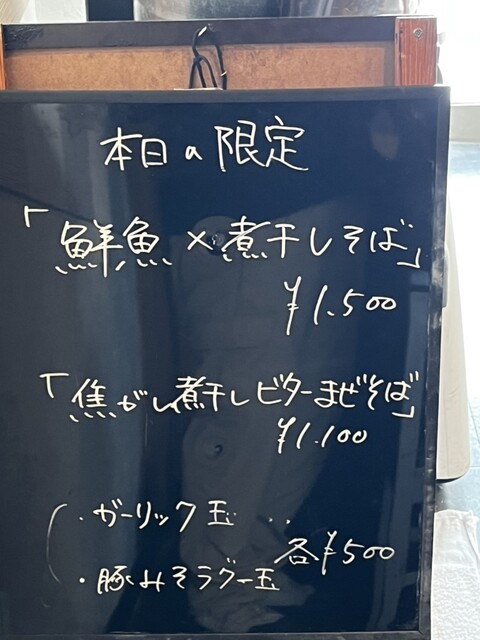 本日の限定
「鮮魚×煮干しそば」
¥1.500
「焦がし煮干しビターまぜそば」
¥1.100
・ガーリック玉 ‥
各¥500
・豚みそラグー玉